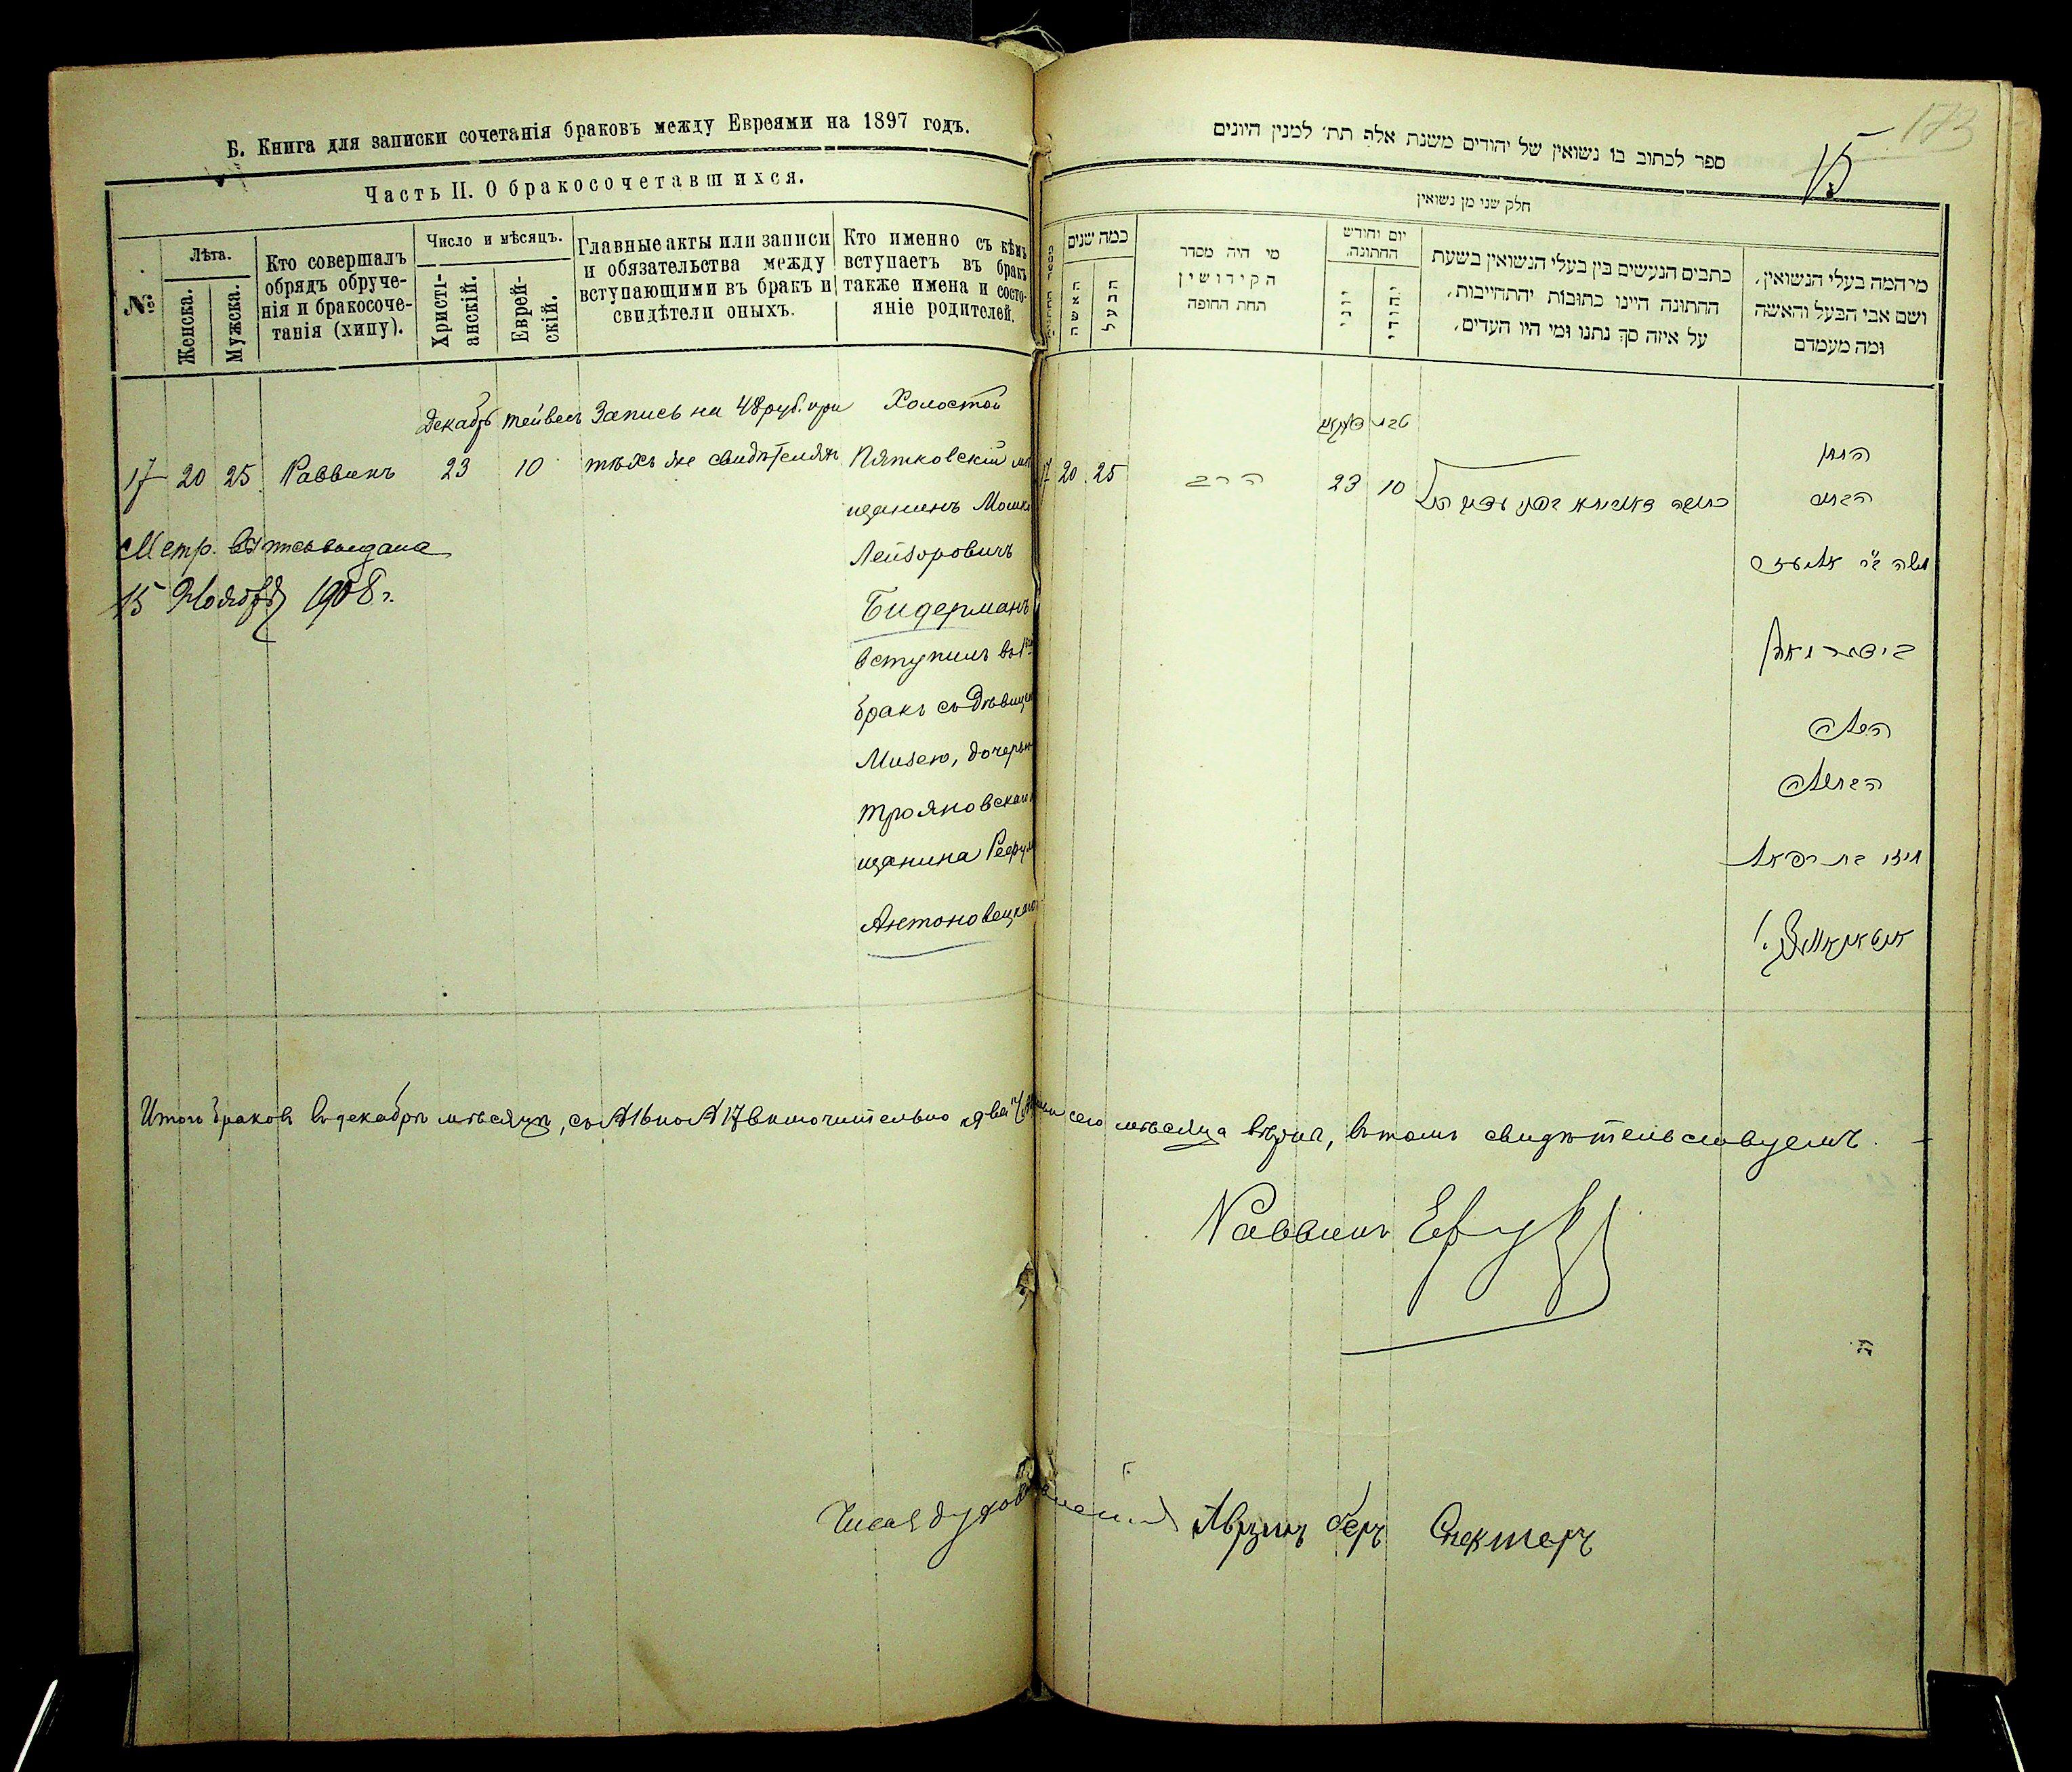 Б. Книга для записки сочетанія браковъ между Евреями на 1897 годъ.
Часть II. О бракосочетавшихся.
№
Лѣта.
Женска.
Мужска.
Кто совершалъ
обрядъ обруче-
нія и бракосоче-
танія (хипу).
Число и мѣсяцъ.
Христі-
анскій.
Еврей-
скій.
Главные акты или записи
и обязательства между
вступающими въ бракъ и
свидѣтели оныхъ.
Кто именно съ кѣмъ
вступаетъ въ бракъ
также имена и состо-
яніе родителей.
Декабр тейвес Запись на 48 руб. при Холостой
17 20 25 Раввинъ 23 10 тѣхъ же свидѣтеляхъ Пятковскій мѣ
щанинъ Мошко
Лейзоровичъ
Бидерманъ
вступилъ въ 1
бракъ съ дѣвицею
Мизею, дочерью
трояновскаго
щанина
Антоновецкаго
Метр. выпись выдана
15 Ноября 1908 г.
Итого браковъ въ декабрѣ мѣсяцѣ, съ № 16 по № 17 включительно два
сего мѣсяца вѣрна, въ томъ свидѣтельствуемъ.
Раввинъ
Членъ духов
Аврумъ Беръ Спекторъ
173
15
ספר לכתוב בו נשואין של יהודים משנת אלף תת׳ למנין היונים
חלק שני מן נשואין
כמה שנים
האשה
הבעל
מי היה מסדר
הקידושין
תחת החופה
יום וחודש
החתונה.
יוני
יהודי
כתבים הנעשים בין בעלי הנשואין בשעת
החתונה היינו כתובות יהתחייבות,
על איזה סך נתנו ומי היו העדים,
מי המה בעלי הנשואין,
ושם אבי הבעל והאשה
ומה מעמדם
טבת
17 20 25 הרב 23 10
החתן
הבחור
משה ב״ר אליעזר
בידערמאן
הכלה
הבתולה
מיזי בת רפאל